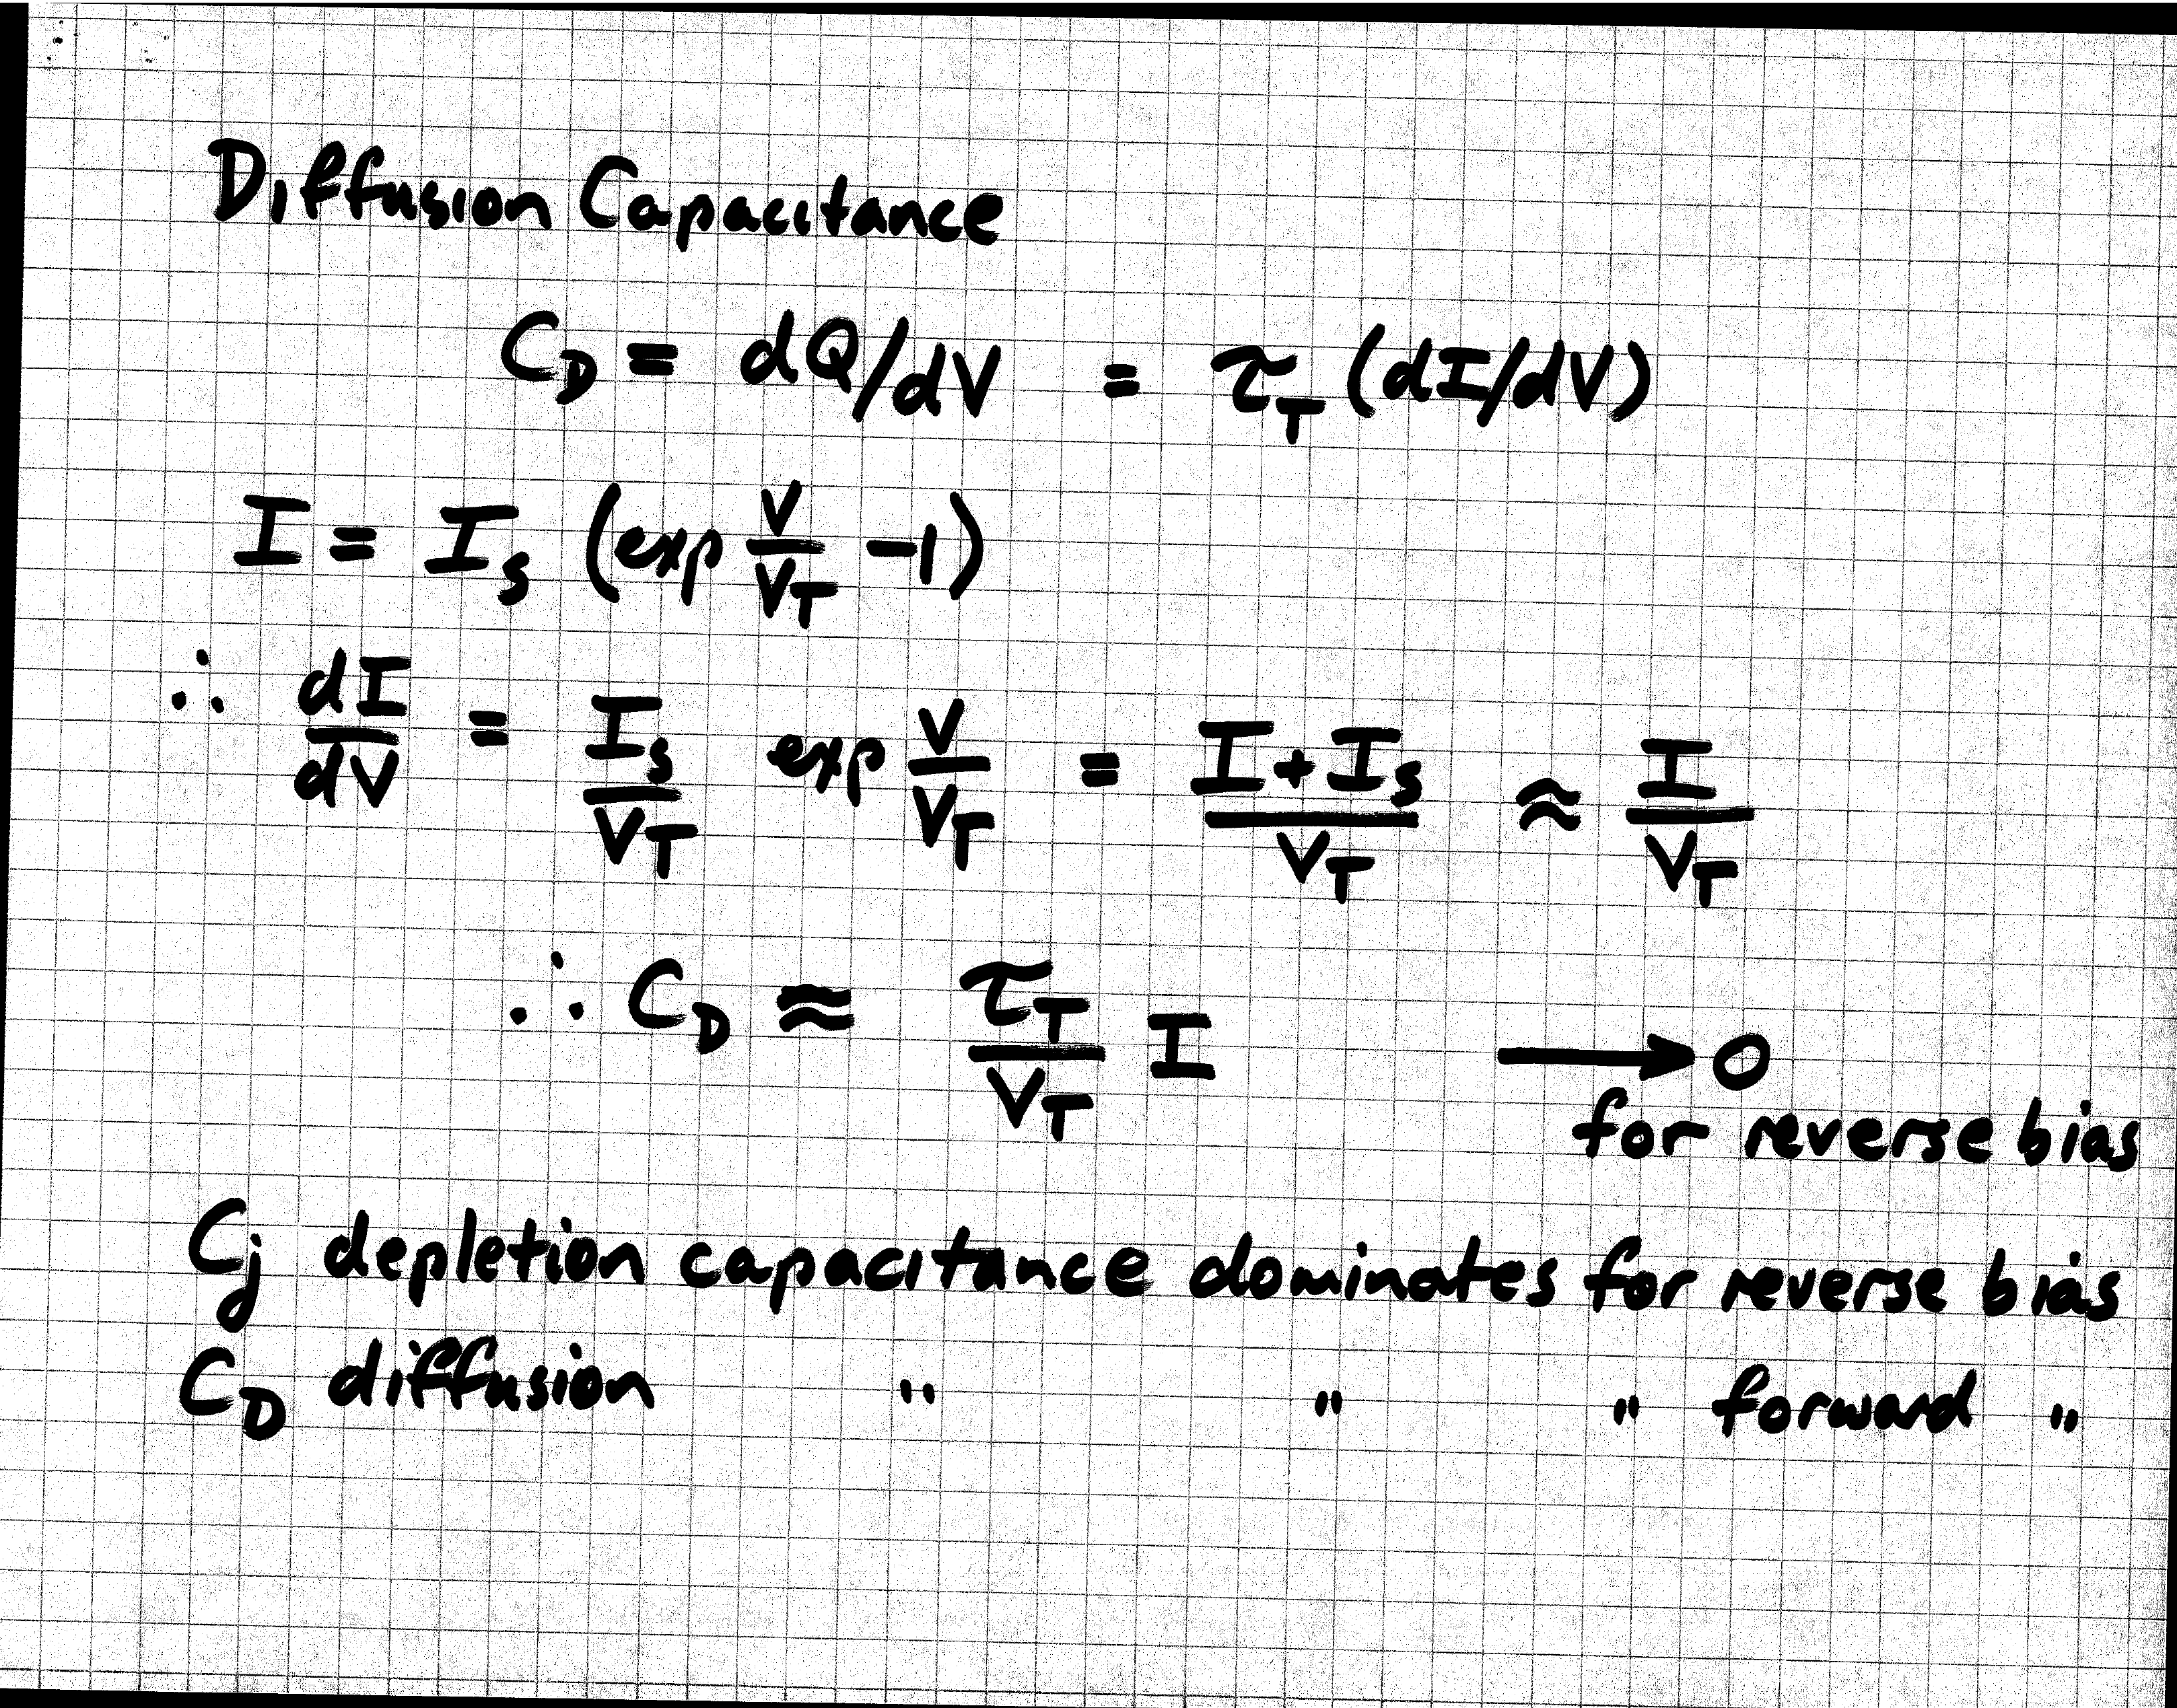 Diffusion Capacitance
C_D = dQ/dV = τ_T (dI/dV)
I = I_s (exp V/V_T − 1)
∴ dI/dV = I_s/V_T exp V/V_T = (I + I_s)/V_T ≈ I/V_T
∴ C_D ≈ τ_T/V_T I → 0
for reverse bias
C_j depletion capacitance dominates for reverse bias
C_D diffusion " " " forward "